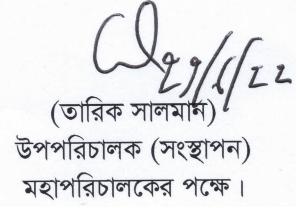 ২৯/৬/২২
(তারিক সালমান)
উপপরিচালক (সংস্থাপন)
মহাপরিচালকের পক্ষে।